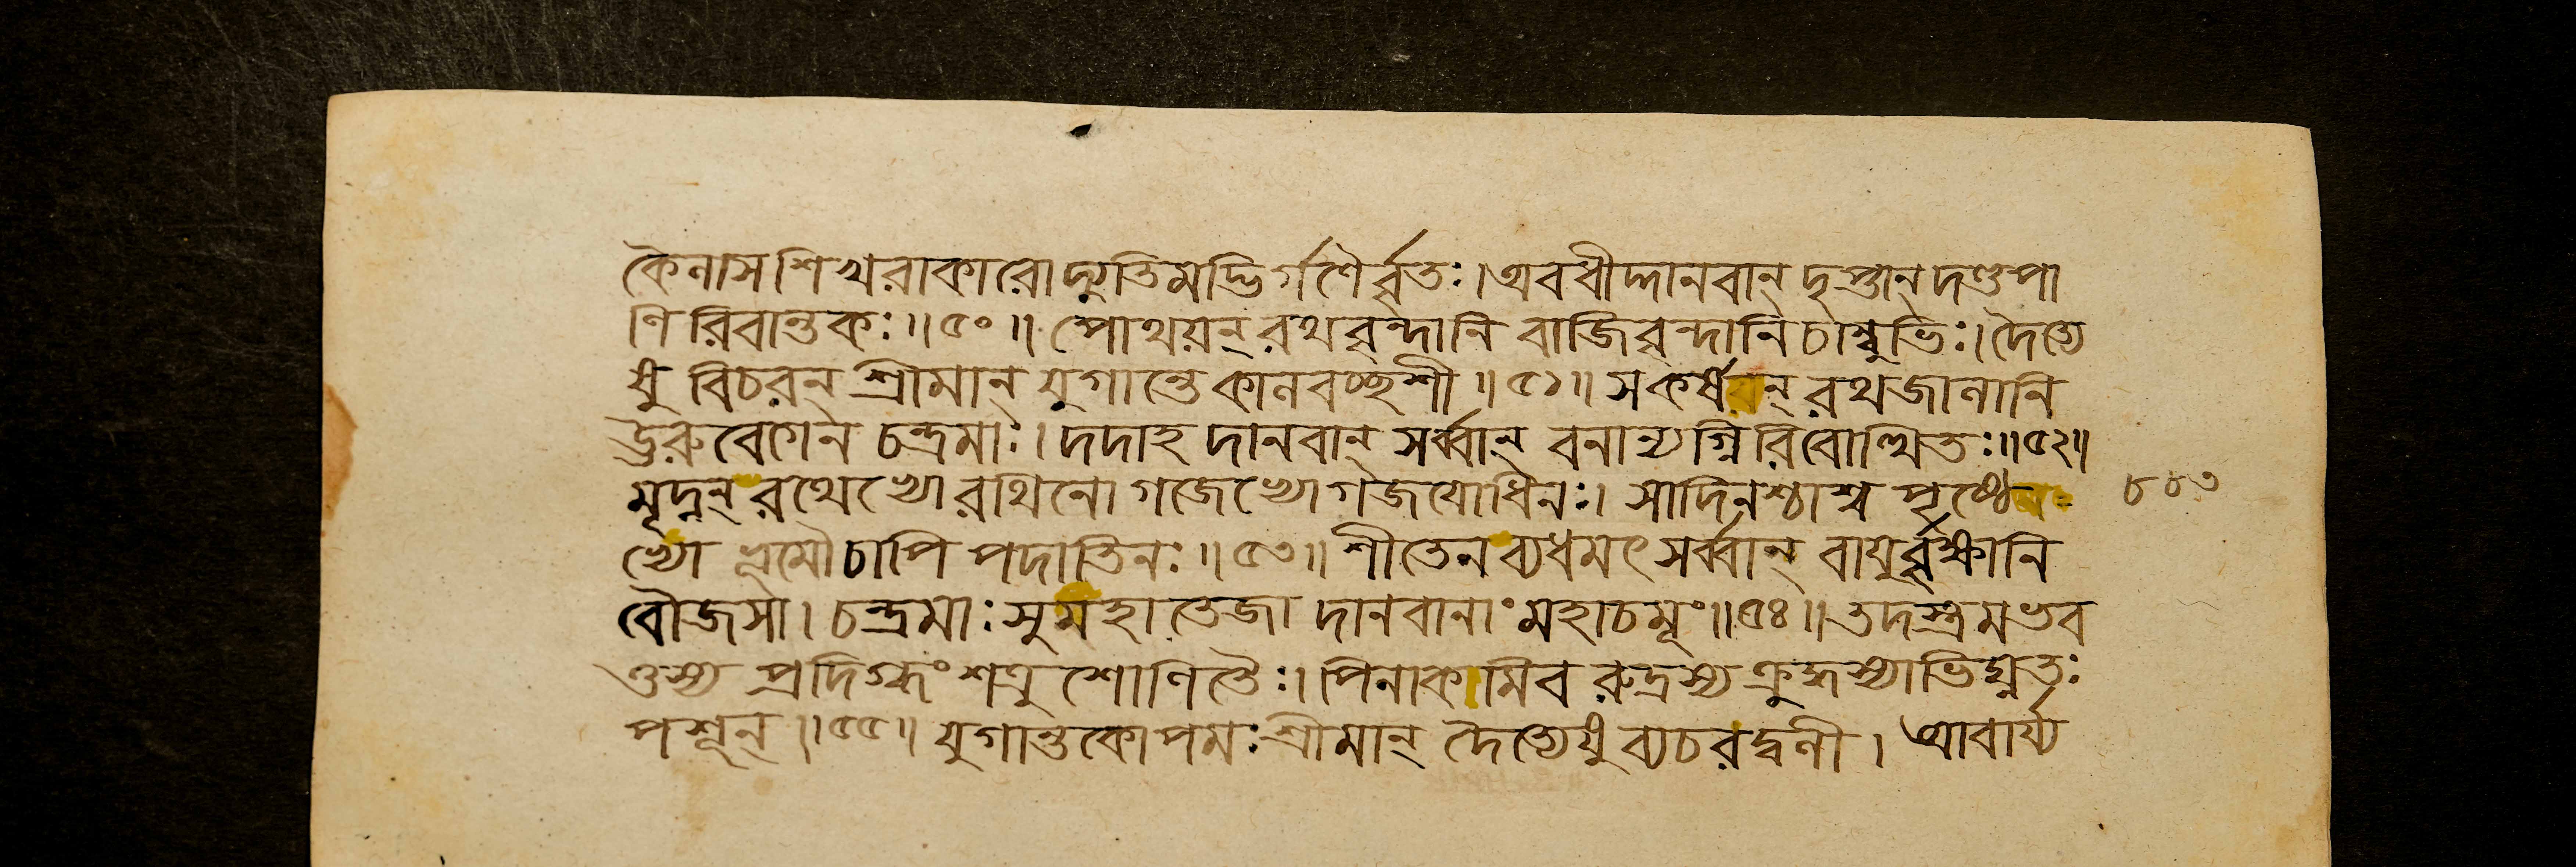 কৈলাসশিখরাকারো দ্যুতিমদ্ভির্গণৈর্বৃতঃ। অবধীদ্দানবান্ দৃপ্তান্ দণ্ডপা
ণিরিবান্তকঃ॥৫০॥ পোথয়ন্ রথবৃন্দানি বাজিবৃন্দানি চাম্বুভিঃ। দৈত্যে
ষু বিচরন্ শ্রীমান্ যুগান্তে কালবচ্ছশী॥৫১॥ স কর্ষন্ রথজালানি
উরুবেগেন চন্দ্রমাঃ। দদাহ দানবান্ সর্ব্বান্ বনান্যগ্নিরিবোত্থিতঃ॥৫২॥
মৃদ্নন্ রথেভ্যো রথিনো গজেভ্যো গজযোধিনঃ। সাদিনশ্চাশ্বপৃষ্ঠে
ভ্যো ভূমৌ চাপি পদাতিনঃ॥৫৩॥ শীতেন ব্যধমৎ সর্ব্বান্ বায়ুর্বৃক্ষানি
বৌজসা। চন্দ্রমাঃ সুমহাতেজা দানবানাং মহাচমূং॥৫৪॥ তদস্ত্রমভব
ত্তস্য প্রদিগ্ধং শত্রুশোণিতৈঃ। পিনাকমিব রুদ্রস্য ক্রুদ্ধস্যাভিঘ্নতঃ
পশূন্॥৫৫॥ যুগান্তকোপমঃ শ্রীমান্ দৈত্যেষু ব্যচরদ্বলী। আবার্য্য